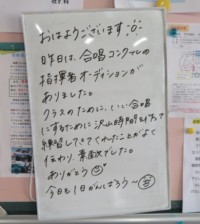 おはようございます
昨日は、合唱コンクールの
指揮者オーディションが
ありました。
クラスのために、いい合唱
にするために沢山時間をけずって
練習してきてくれたことがよく
伝わり、素敵でした。
ありがとう
今日も1日がんばろう〜